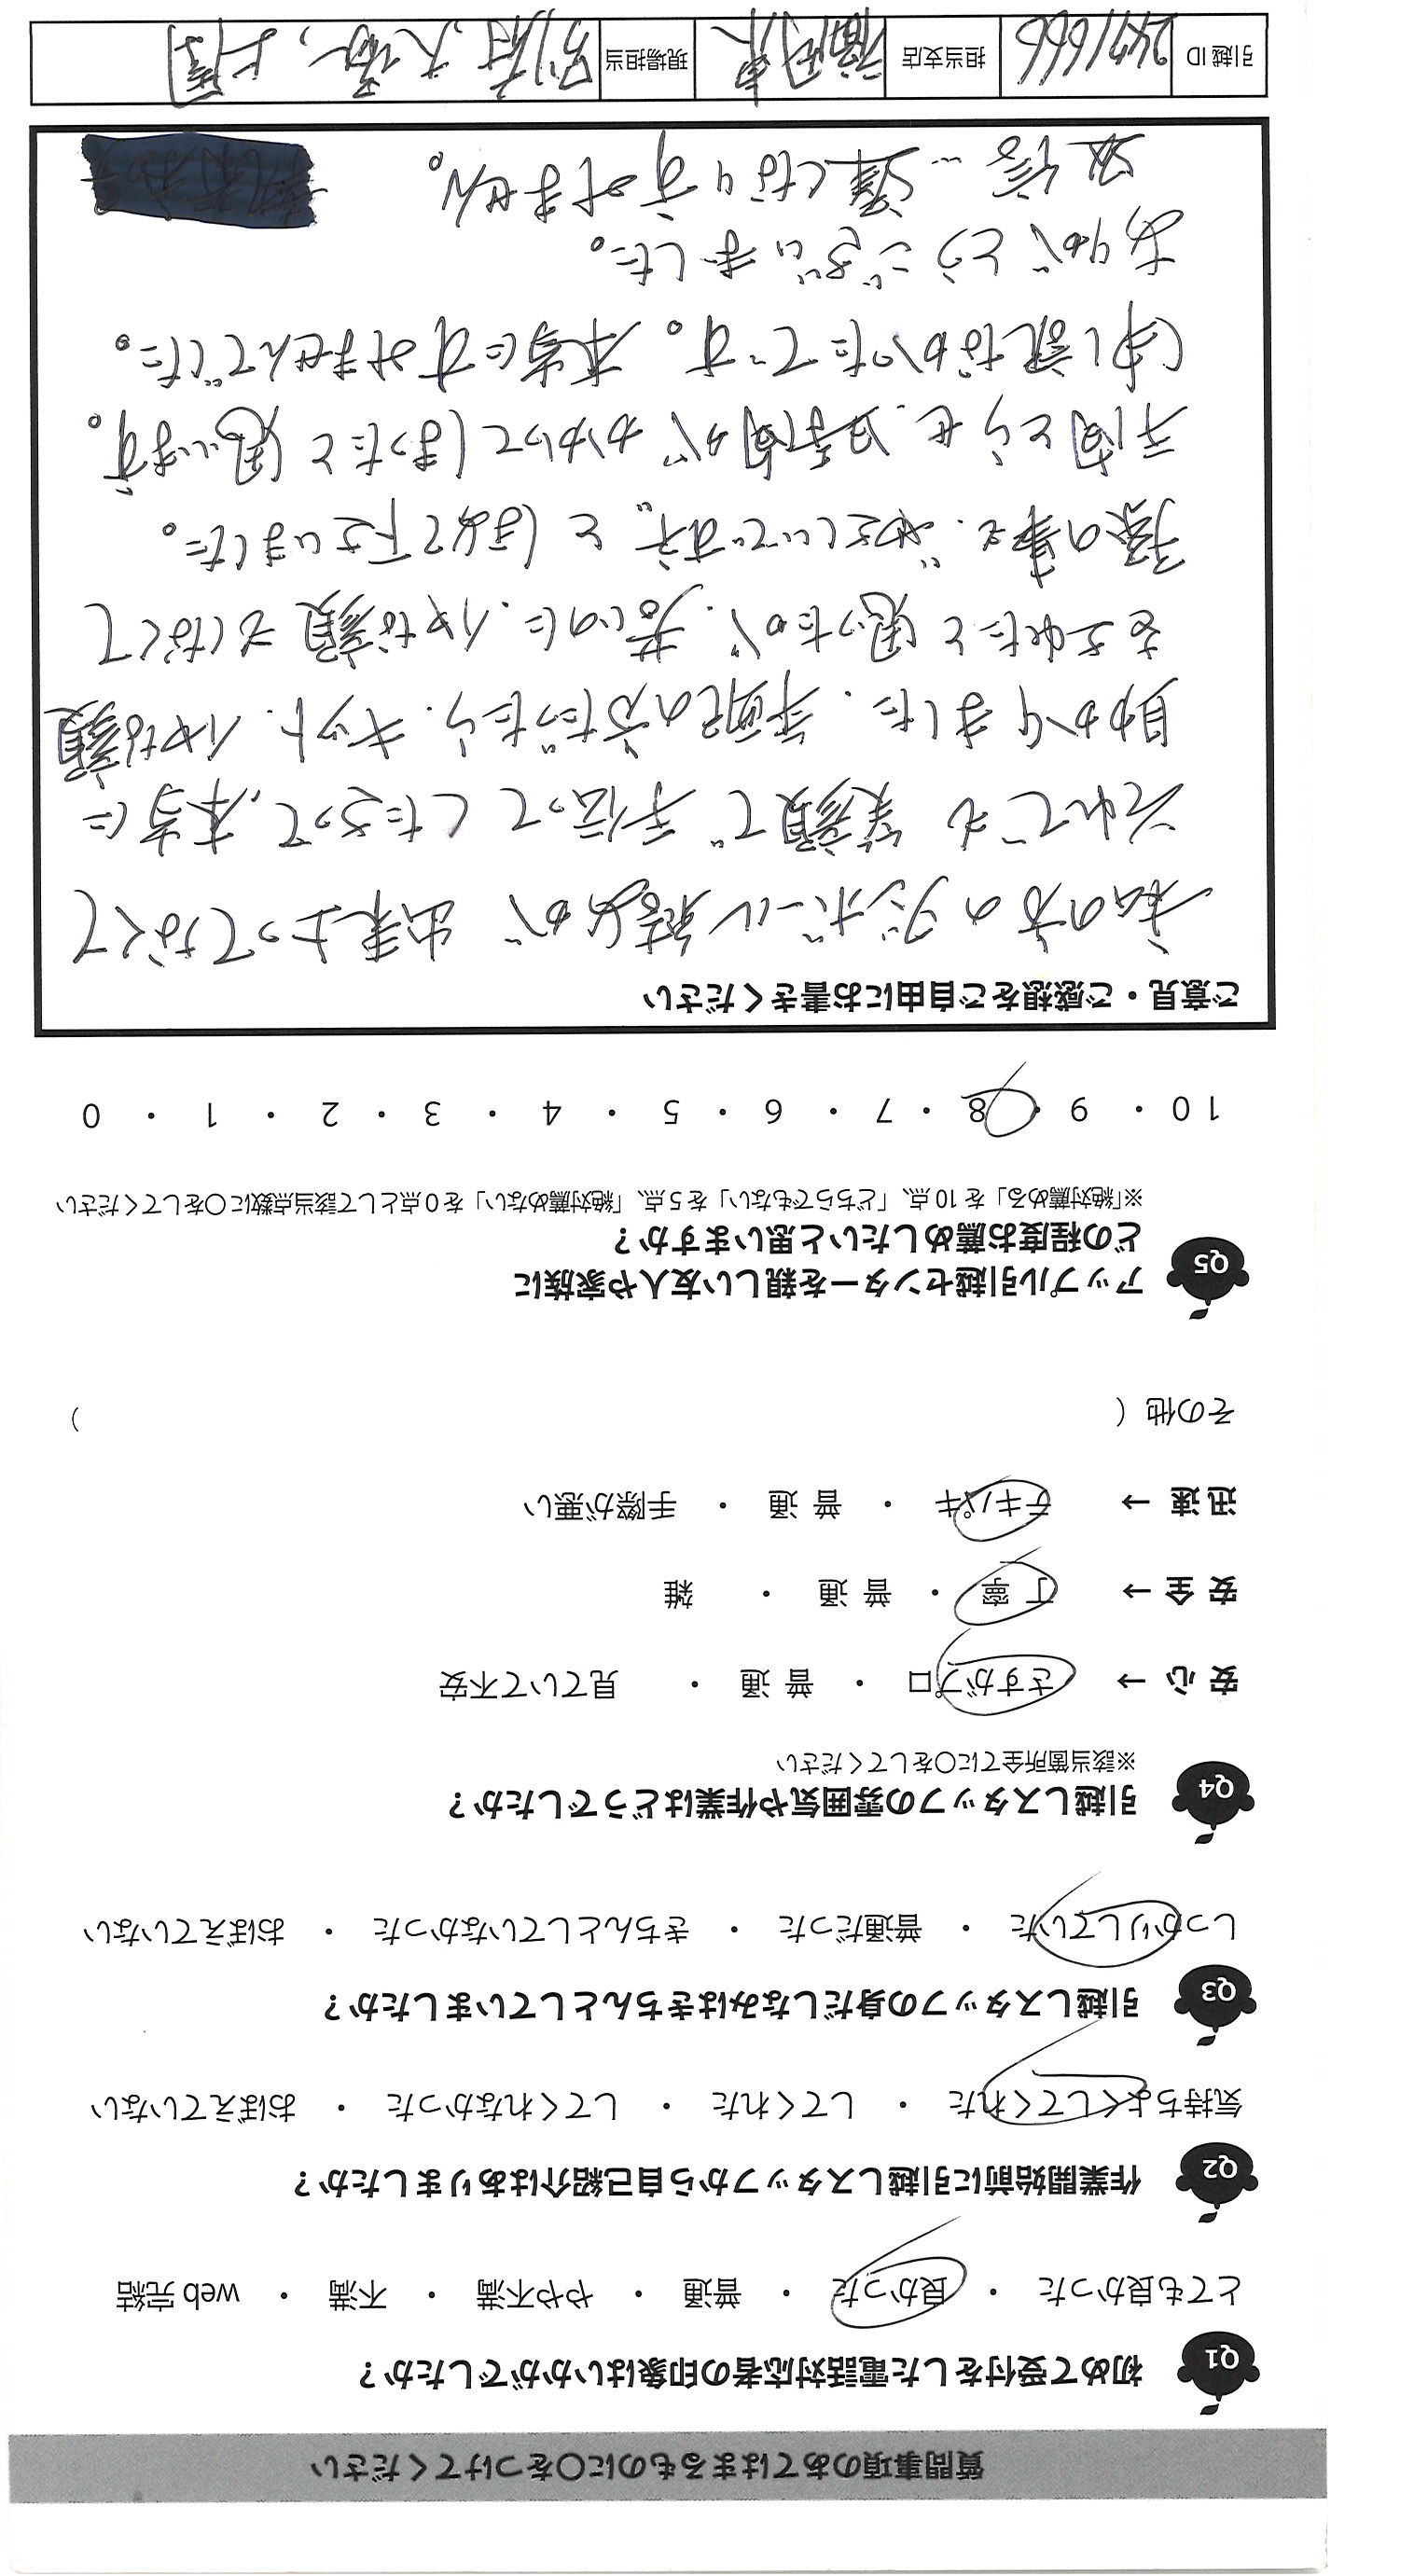 質問事項のあてはまるものに〇をつけてください
Q1 初めて受付をした電話対応者の印象はいかがでしたか？
とても良かった ・ 良かった ・ 普通 ・ やや不満 ・ 不満 ・ web 完結
Q2 作業開始前に引越しスタッフから自己紹介はありましたか？
気持ちよくしてくれた ・ してくれた ・ してくれなかった ・ おぼえていない
Q3 引越しスタッフの身だしなみはきちんとしていましたか？
しっかりしていた ・ 普通だった ・ きちんとしていなかった ・ おぼえていない
Q4 引越しスタッフの雰囲気や作業はどうでしたか？
※該当箇所全てに〇をしてください
安 心 → さすがプロ ・ 普 通 ・ 見ていて不安
安 全 → 丁 寧 ・ 普 通 ・ 雑
迅 速 → テキパキ ・ 普 通 ・ 手際が悪い
その他 ( )
Q5 アップル引越センターを親しい友人や家族に
どの程度お薦めしたいと思いますか？
※「絶対薦める」を 10 点、「どちらでもない」を 5 点、「絶対薦めない」を 0 点として該当点数に〇をしてください
10 ・ 9 ・ 8 ・ 7 ・ 6 ・ 5 ・ 4 ・ 3 ・ 2 ・ 1 ・ 0
ご意見・ご感想をご自由にお書きください
私の方のダンボール詰めが 出来上ってなくて
それでも 笑顔で 手伝って くださって、本当に
助かりました. 年配の方だったら. キット. イヤな顔
をされたと思ったが. 若いのに. イヤな顔 もしなくて
孫の事も “やさしいですネ”と ほめて下さいました。
手間とらせ. 時間が かかってしまったと思います。
申し訳なかったです。本当にすみませんでした。
ありがとう ございました。
返信… 遅くなりすみません。
引越 ID 2471666 担当支店 福岡東 現場担当 別府、大